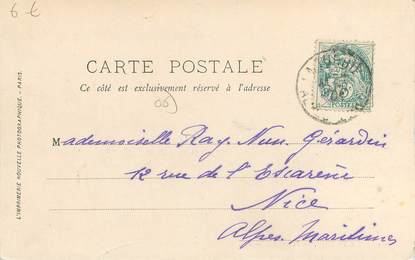 6 €
CARTE POSTALE
Ce côté est exclusivement réservé à l'adresse
06
Mademoiselle Ray. Nun. Gérardin
12 rue de l'Escarène
Nice
Alpes Maritimes
L'IMPRIMERIE NOUVELLE PHOTOGRAPHIQUE - PARIS.
POSTES